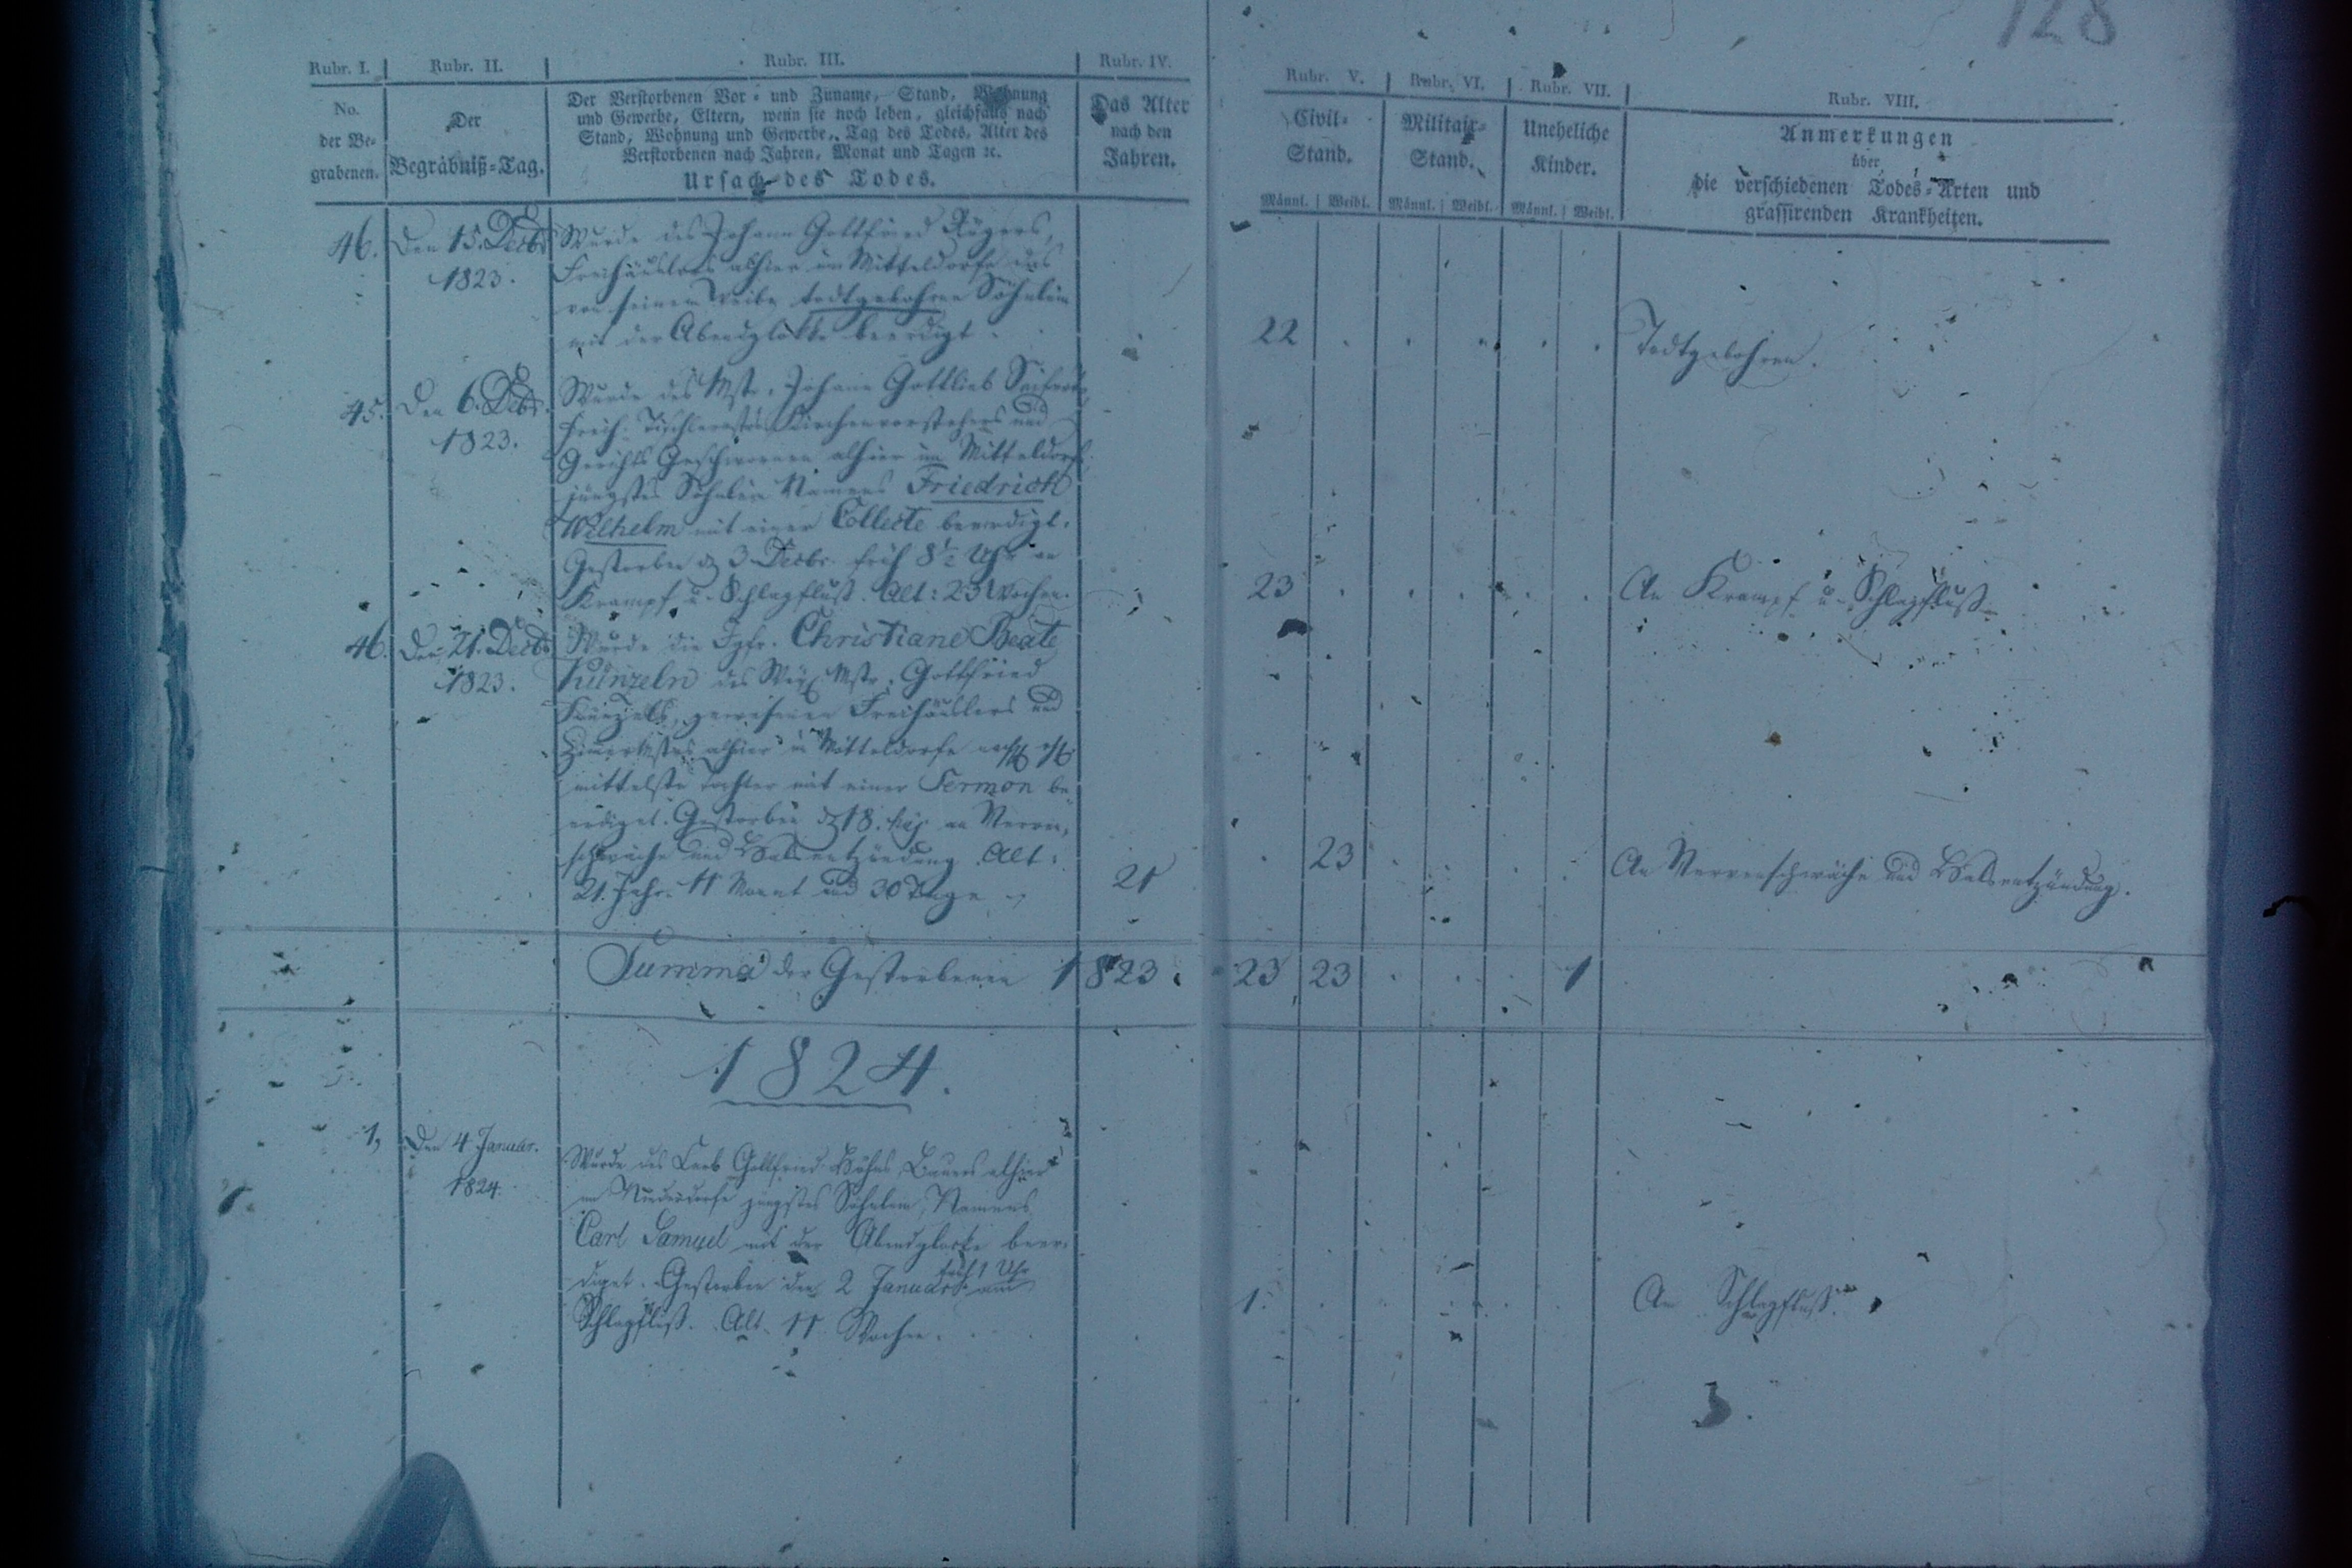 128
Rubr. I. Rubr. II. Rubr. III. Rubr. IV. Rubr. V. Rubr. VI. Rubr. VII. Rubr. VIII.
No.
der Be-
grabenen.
Der
Begräbniß-Tag.
Der Verstorbenen Vor- und Zuname, Stand, Wohnung
und Gewerbe, Eltern, wenn sie noch leben, gleichfalls nach
Stand, Wohnung und Gewerbe, Tag des Todes, Alter des
Verstorbenen nach Jahren, Monat und Tagen ꝛc.
Ursach des Todes.
Das Alter
nach den
Jahren.
Civil-
Stand.
Männl. Weibl.
Militair-
Stand.
Männl. Weibl.
Uneheliche
Kinder.
Männl. Weibl.
Anmerkungen
über
die verschiedenen Todes-Arten und
grassirenden Krankheiten.
46. Den 15. Decbr
1823.
Wurde des Johann Gottfried
Freihäuslers alhier im Mitteldorfe das
von seinem Weibe todtgebohrne Söhnlein
mit der Abendglokke beerdigt.
22 Todtgebohren.
45. Den 6. Decbr.
1823.
Wurde des Mstr. Johann Gottlieb Seiferts
Freih. Kirchenvorstehers und
Gerichts Geschwornen alhier im Mitteldorfe
jüngstes Söhnlein Namens Friedrich
Wilhelm mit einer Collecte beerdigt.
Gestorben d. 3 Decbr. früh 8½ Uhr an
Krampf u. Schlagfluß. Alt: 23 Wochen.
23 An Krampf u. Schlagfluß
46. Den 21. Decbr
1823.
Wurde die Igfr. Christiane Beate
Künzeln des Mstr. Gottfried
Künzels, gewesenen Freihäuslers und
alhier im Mitteldorfe
mittelste Tochter mit einer Sermon be
erdiget. Gestorben d. 18. huj. an Nerven-
schwäche und Halsentzündung. Alt:
21. Jahr. 11 Monat und 30 Tage
21 23 An Nervenschwäche und Halsentzündung.
Summa der Gestorbenen 1823. 23 23 1
1824.
1, Den 4 Januar.
1824.
Wurde des Carl Gottfried Bauers alhier
im Niederdorfe jüngstes Söhnlein, Namens
Carl Samuel mit der Abendglocke beer-
diget. Gestorben den 2 Januar früh 1 Uhr am
Schlagfluß. Alt 11 Wochen.
1. An Schlagfluß.